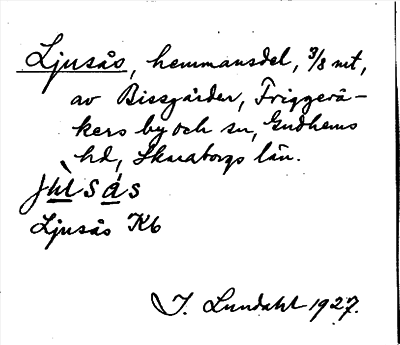 Ljusås, hemmansdel, 3/8 mt,
av Bissgården, Friggerå-
kers by och sn, Gudhems
hd, Skaraborgs län.
Ljusås Kb
I. Lundahl 1927.